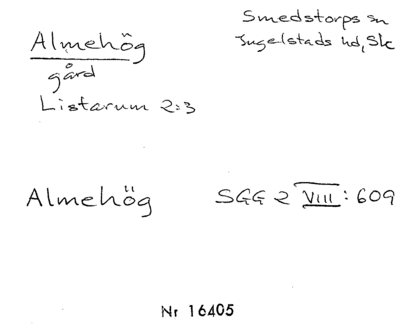 Almehög
gård
Listarum 2:3
Smedstorps sn
Ingelstads hd, Sk
Almehög
SGG 2 VIII: 609
Nr 16405